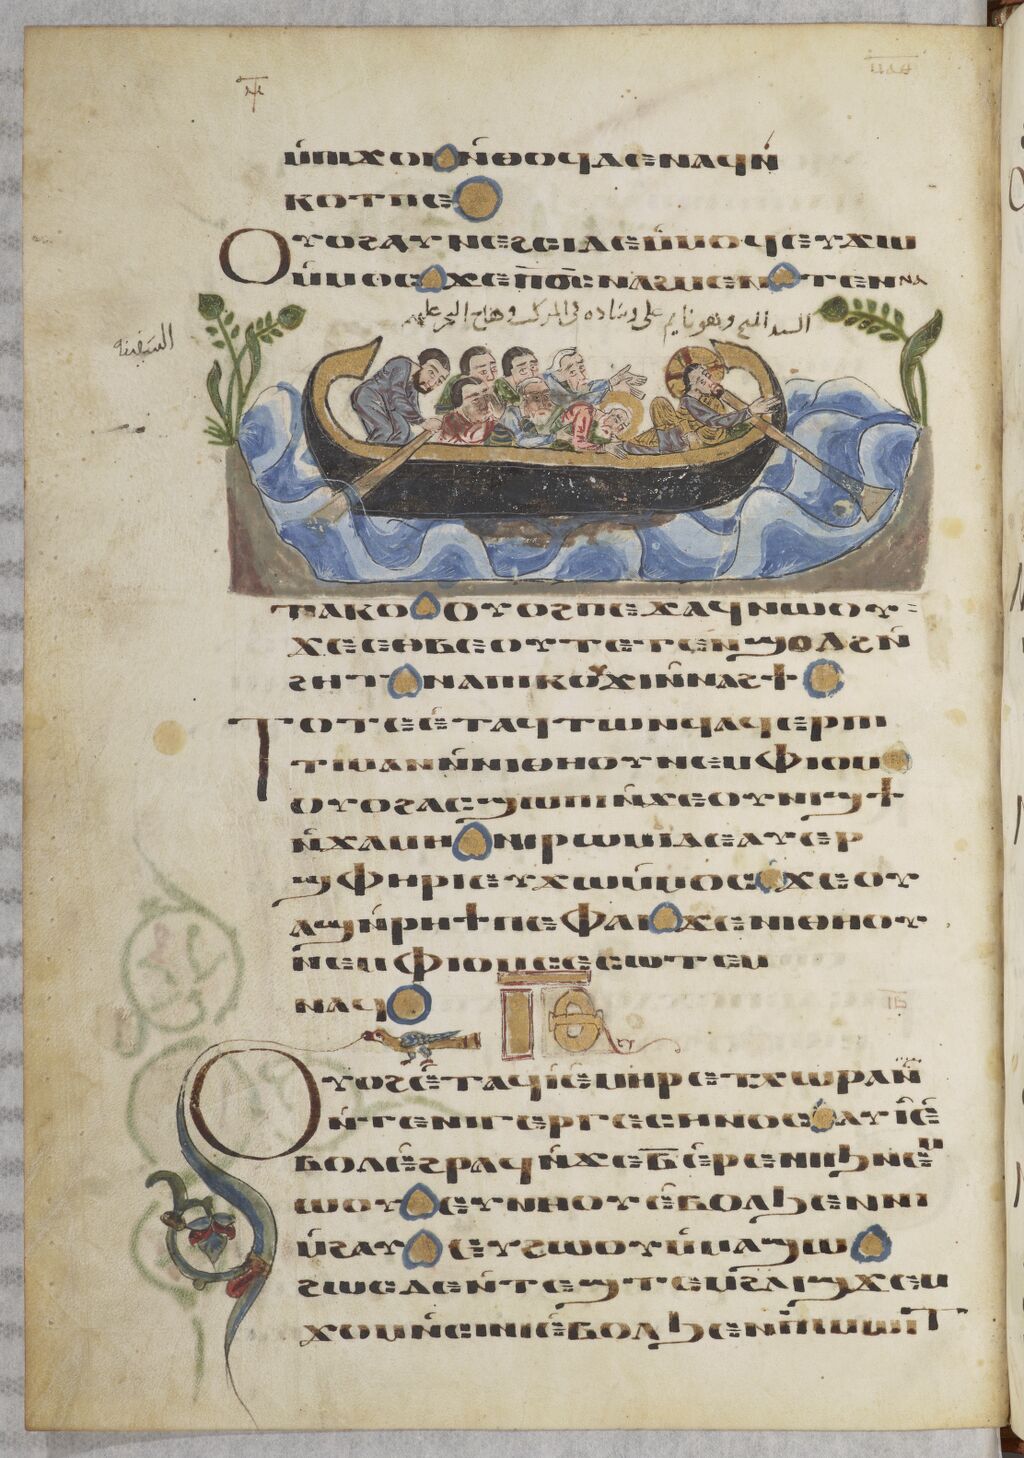 ⲙ̀ⲡⲓϫⲟⲓ ⲛ̀ⲑⲟϥ ⲇⲉ ⲛⲁϥⲛ̀
ⲕⲟⲧ ⲡⲉ
ⲟⲩⲟϩ ⲁⲩⲛⲉϩⲥⲓ ⲇⲉ ⲙ̀ⲙⲟϥ ⲉⲩϫⲱ
ⲙ̀ⲙⲟⲥ ϫⲉ ⲡ̅ⲟ̅ⲥ̅ ⲛⲁϩⲙⲉⲛ ⲧⲉⲛⲛⲁ
السيد المسيح وهو نايم على وساده في المركب وهاج البحر عليهم
السفينه
ⲧⲁⲕⲟ ⲟⲩⲟϩ ⲡⲉϫⲁϥ ⲛⲱⲟⲩ
ϫⲉ ⲉⲑⲃⲉ ⲟⲩ ⲧⲉⲧⲉⲛϣⲟⲗϩ ⲛ̀
ϩⲏⲧ ⲛⲁ ⲡⲓⲕⲟⲩϫⲓ ⲛ̀ⲛⲁϩϯ
ⲧⲟⲧⲉ ⲉ̀ⲧⲁϥⲧⲱⲛϥ ⲁϥⲉⲣⲉⲡⲓ
ⲧⲓⲙⲁⲛ ⲛ̀ⲛⲓⲑⲏⲟⲩ ⲛⲉⲙ ⲫⲓⲟⲙ
ⲟⲩⲟϩ ⲁⲥϣⲱⲡⲓ ⲛ̀ϫⲉ ⲟⲩⲛⲓϣϯ
ⲛ̀ϫⲁⲙⲏ ⲛⲓⲣⲱⲙⲓ ⲇⲉ ⲁⲩⲉⲣ
ϣⲫⲏⲣⲓ ⲉⲩϫⲱ ⲙ̀ⲙⲟⲥ ϫⲉ ⲟⲩ
ⲁϣ ⲛ̀ⲣⲏϯ ⲡⲉ ⲫⲁⲓ ϫⲉ ⲛⲓⲑⲏⲟⲩ
ⲛⲉⲙ ⲫⲓⲟⲙ ⲥⲉⲥⲱⲧⲉⲙ
ⲛⲁϥ
ⲓ̅ⲑ̅
ⲟⲩⲟϩ ⲉ̀ⲧⲁϥⲓ̀ ⲉ̀ⲙⲏⲣ ⲉ̀ⲧⲭⲱⲣⲁ ⲛ̀
ⲛ̀ⲧⲉ ⲛⲓⲅⲉⲣⲅⲉⲥⲏⲛⲟⲥ ⲁⲩⲓ̀ ⲉ̀
ⲃⲟⲗ ⲉ̀ϩⲣⲁϥ ⲛ̀ϫⲉ ⲃ̅ ⲉ̀ⲣⲉ ⲛⲓⲓϧ ⲛⲉⲙ
ⲱⲟⲩ ⲉⲩⲛⲏⲟⲩ ⲉ̀ⲃⲟⲗ ϧⲉⲛ ⲛⲓ
ⲙ̀ϩⲁⲩ ⲉⲩϩⲱⲟⲩ ⲙ̀ⲙⲁϣⲱ
ϩⲱⲥⲇⲉ ⲛ̀ⲧⲉϣⲧⲉⲙ ϩⲗⲓ ϣϫⲉⲙ
ϫⲟⲙ ⲛ̀ⲥⲓⲛⲓ ⲉ̀ⲃⲟⲗ ϧⲉⲛ ⲡⲓⲙⲱⲓⲧ